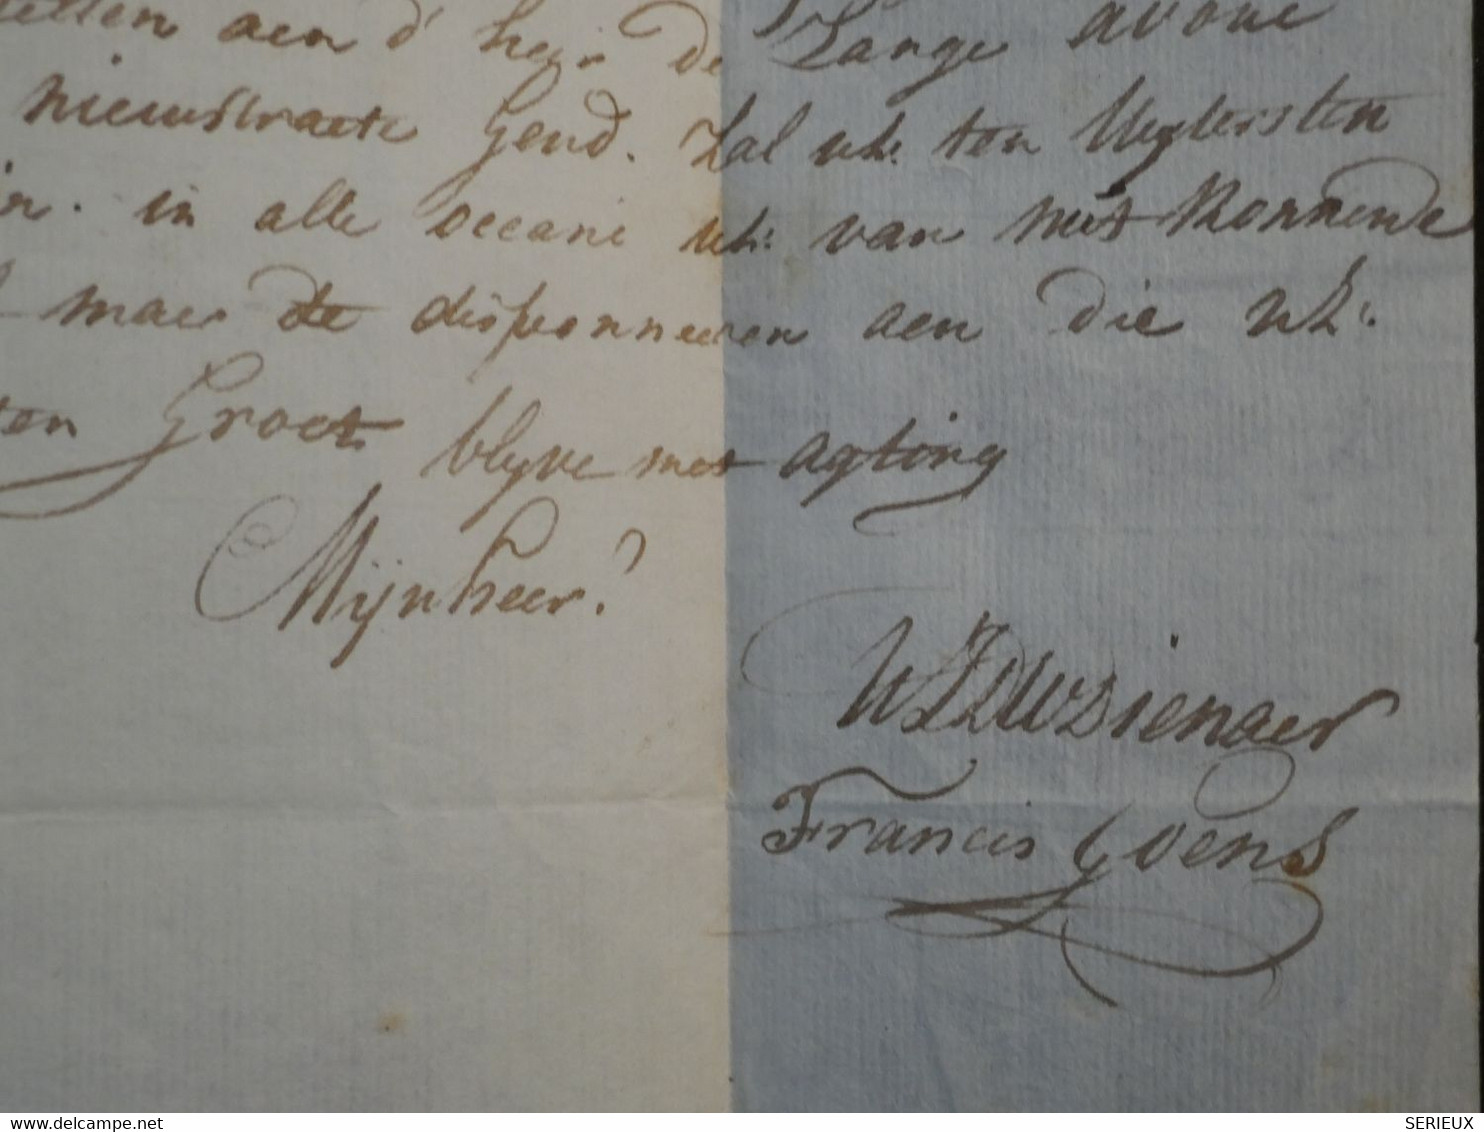 ellen aen d' heer De Lange avoué
nieuwstraete Gend. Zal uE: ten Uyttersten
in alle occane uE: van niet konnende
maer te disponneeren aen die uE:
ten Groet blyve met agting
Mijnheer?
UEDWDienaer
Francis Goens
www.delcampe.net
SERIEUX